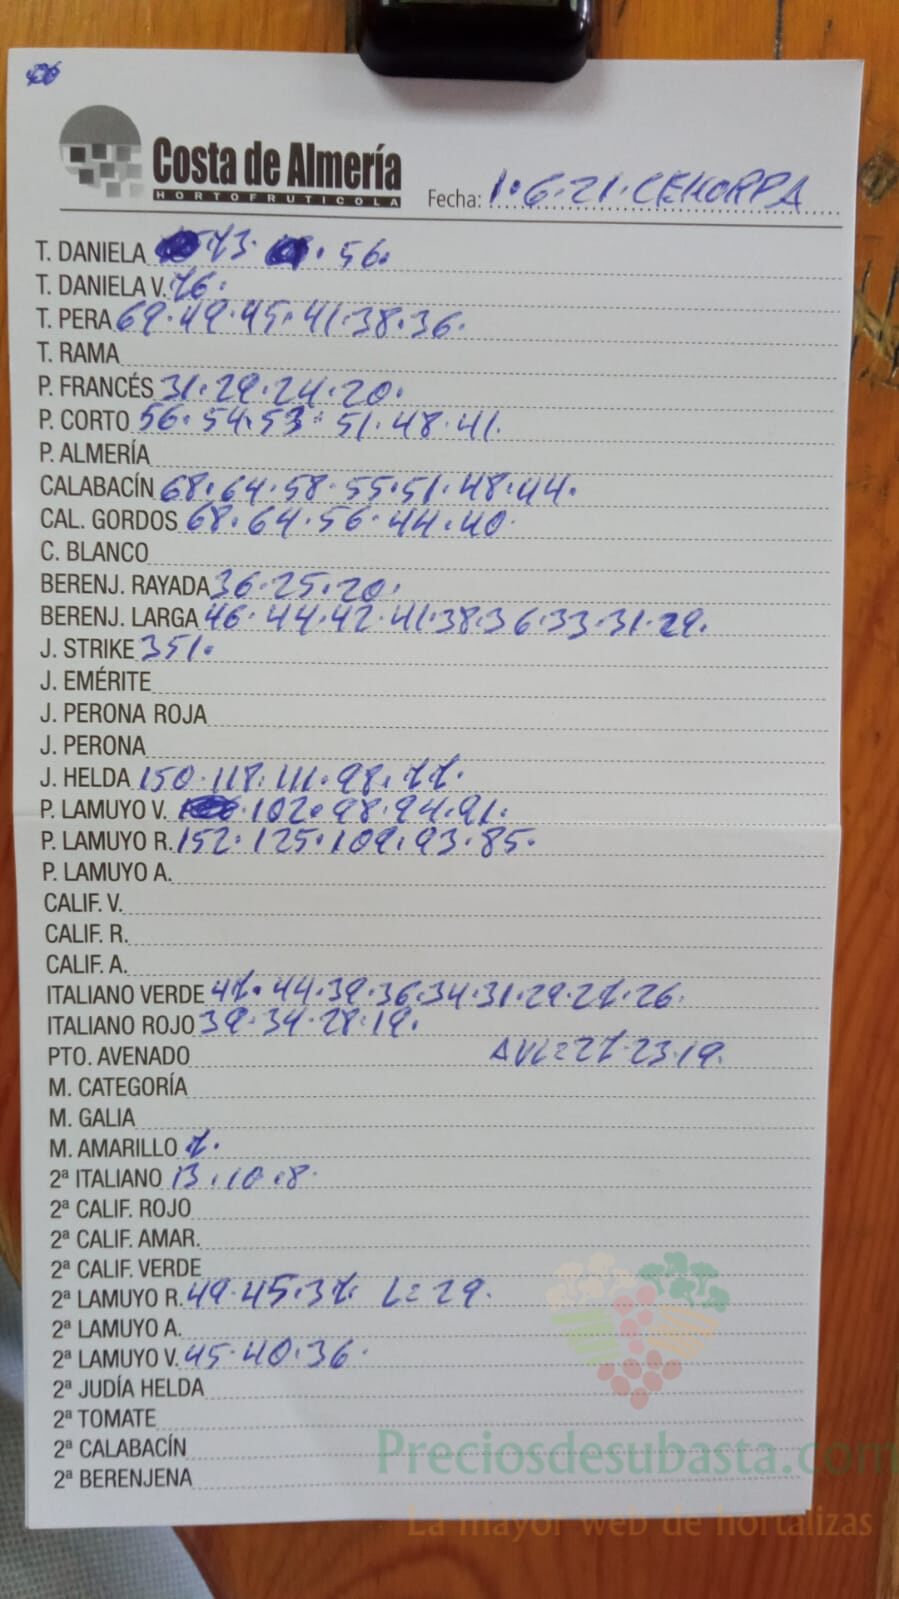 Costa de Almería
HORTOFRUTICOLA
Fecha: 1.6.21. CEHORPA
T. DANIELA 73. 56.
T. DANIELA V. 76.
T. PERA 69.49.45.41.38.36.
T. RAMA
P. FRANCÉS 31.29.24.20.
P. CORTO 56.54.53.51.48.41.
P. ALMERÍA
CALABACÍN 68.64.58.55.51.48.44.
CAL. GORDOS 68.64.56.44.40.
C. BLANCO
BERENJ. RAYADA 36.25.20.
BERENJ. LARGA 46.44.42.41.38.36.33.31.29.
J. STRIKE 351.
J. EMÉRITE
J. PERONA ROJA
J. PERONA
J. HELDA 150.118.111.98.77.
P. LAMUYO V. 102.98.94.91.
P. LAMUYO R. 152.125.109.93.85.
P. LAMUYO A.
CALIF. V.
CALIF. R.
CALIF. A.
ITALIANO VERDE 47.44.39.36.34.31.29.27.26.
ITALIANO ROJO 39.34.28.19.
PTO. AVENADO AVL=27.23.19.
M. CATEGORÍA
M. GALIA
M. AMARILLO 7.
2ª ITALIANO 13.10.8.
2ª CALIF. ROJO
2ª CALIF. AMAR.
2ª CALIF. VERDE
2ª LAMUYO R. 49.45.37. L=29.
2ª LAMUYO A.
2ª LAMUYO V. 45.40.36.
2ª JUDÍA HELDA
2ª TOMATE
2ª CALABACÍN
2ª BERENJENA
Preciosdesubasta.com
La mayor web de hortalizas